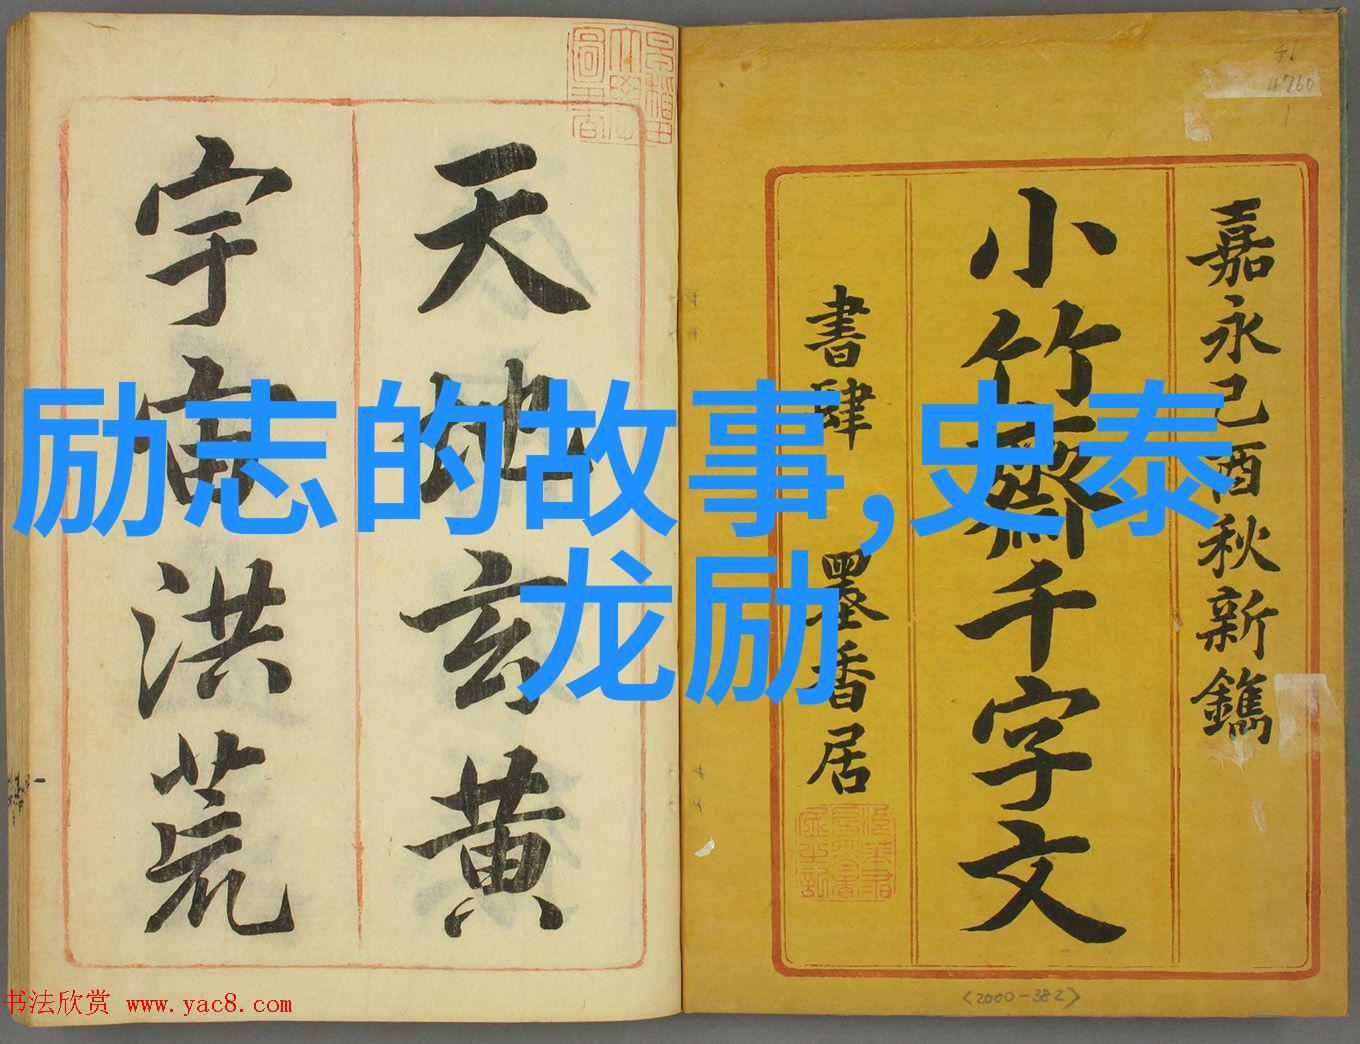 嘉永己酉秋新鐫
小竹齋千字文
書肆 墨香居
天地玄黄
宇宙洪荒
励志的故事,史泰
龙励
书法欣赏 www.yac8.com
46
4760
<2000-382>